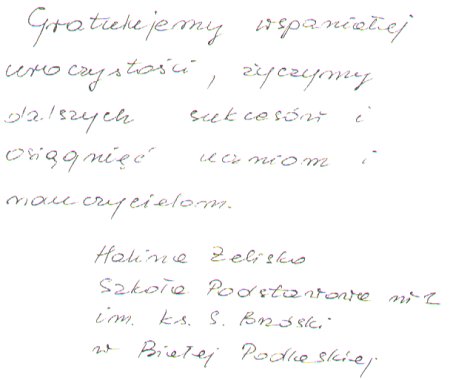 Gratulujemy wspaniałej
uroczystości, życzymy
dalszych sukcesów i
osiągnięć uczniom i
nauczycielom.
Halina Zelisko
Szkoła Podstawowa nr 2
im. ks. S. Brzóski
w Białej Podlaskiej